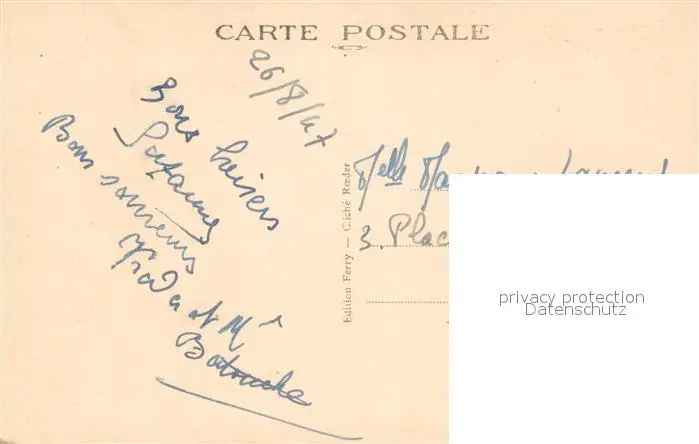 CARTE POSTALE
26/8/47
Bons baisers
Suzanne
Bons souvenirs
et Mr
Edition Ferry — Cliché Rœder
Melle
3. Plac
privacy protection
Datenschutz